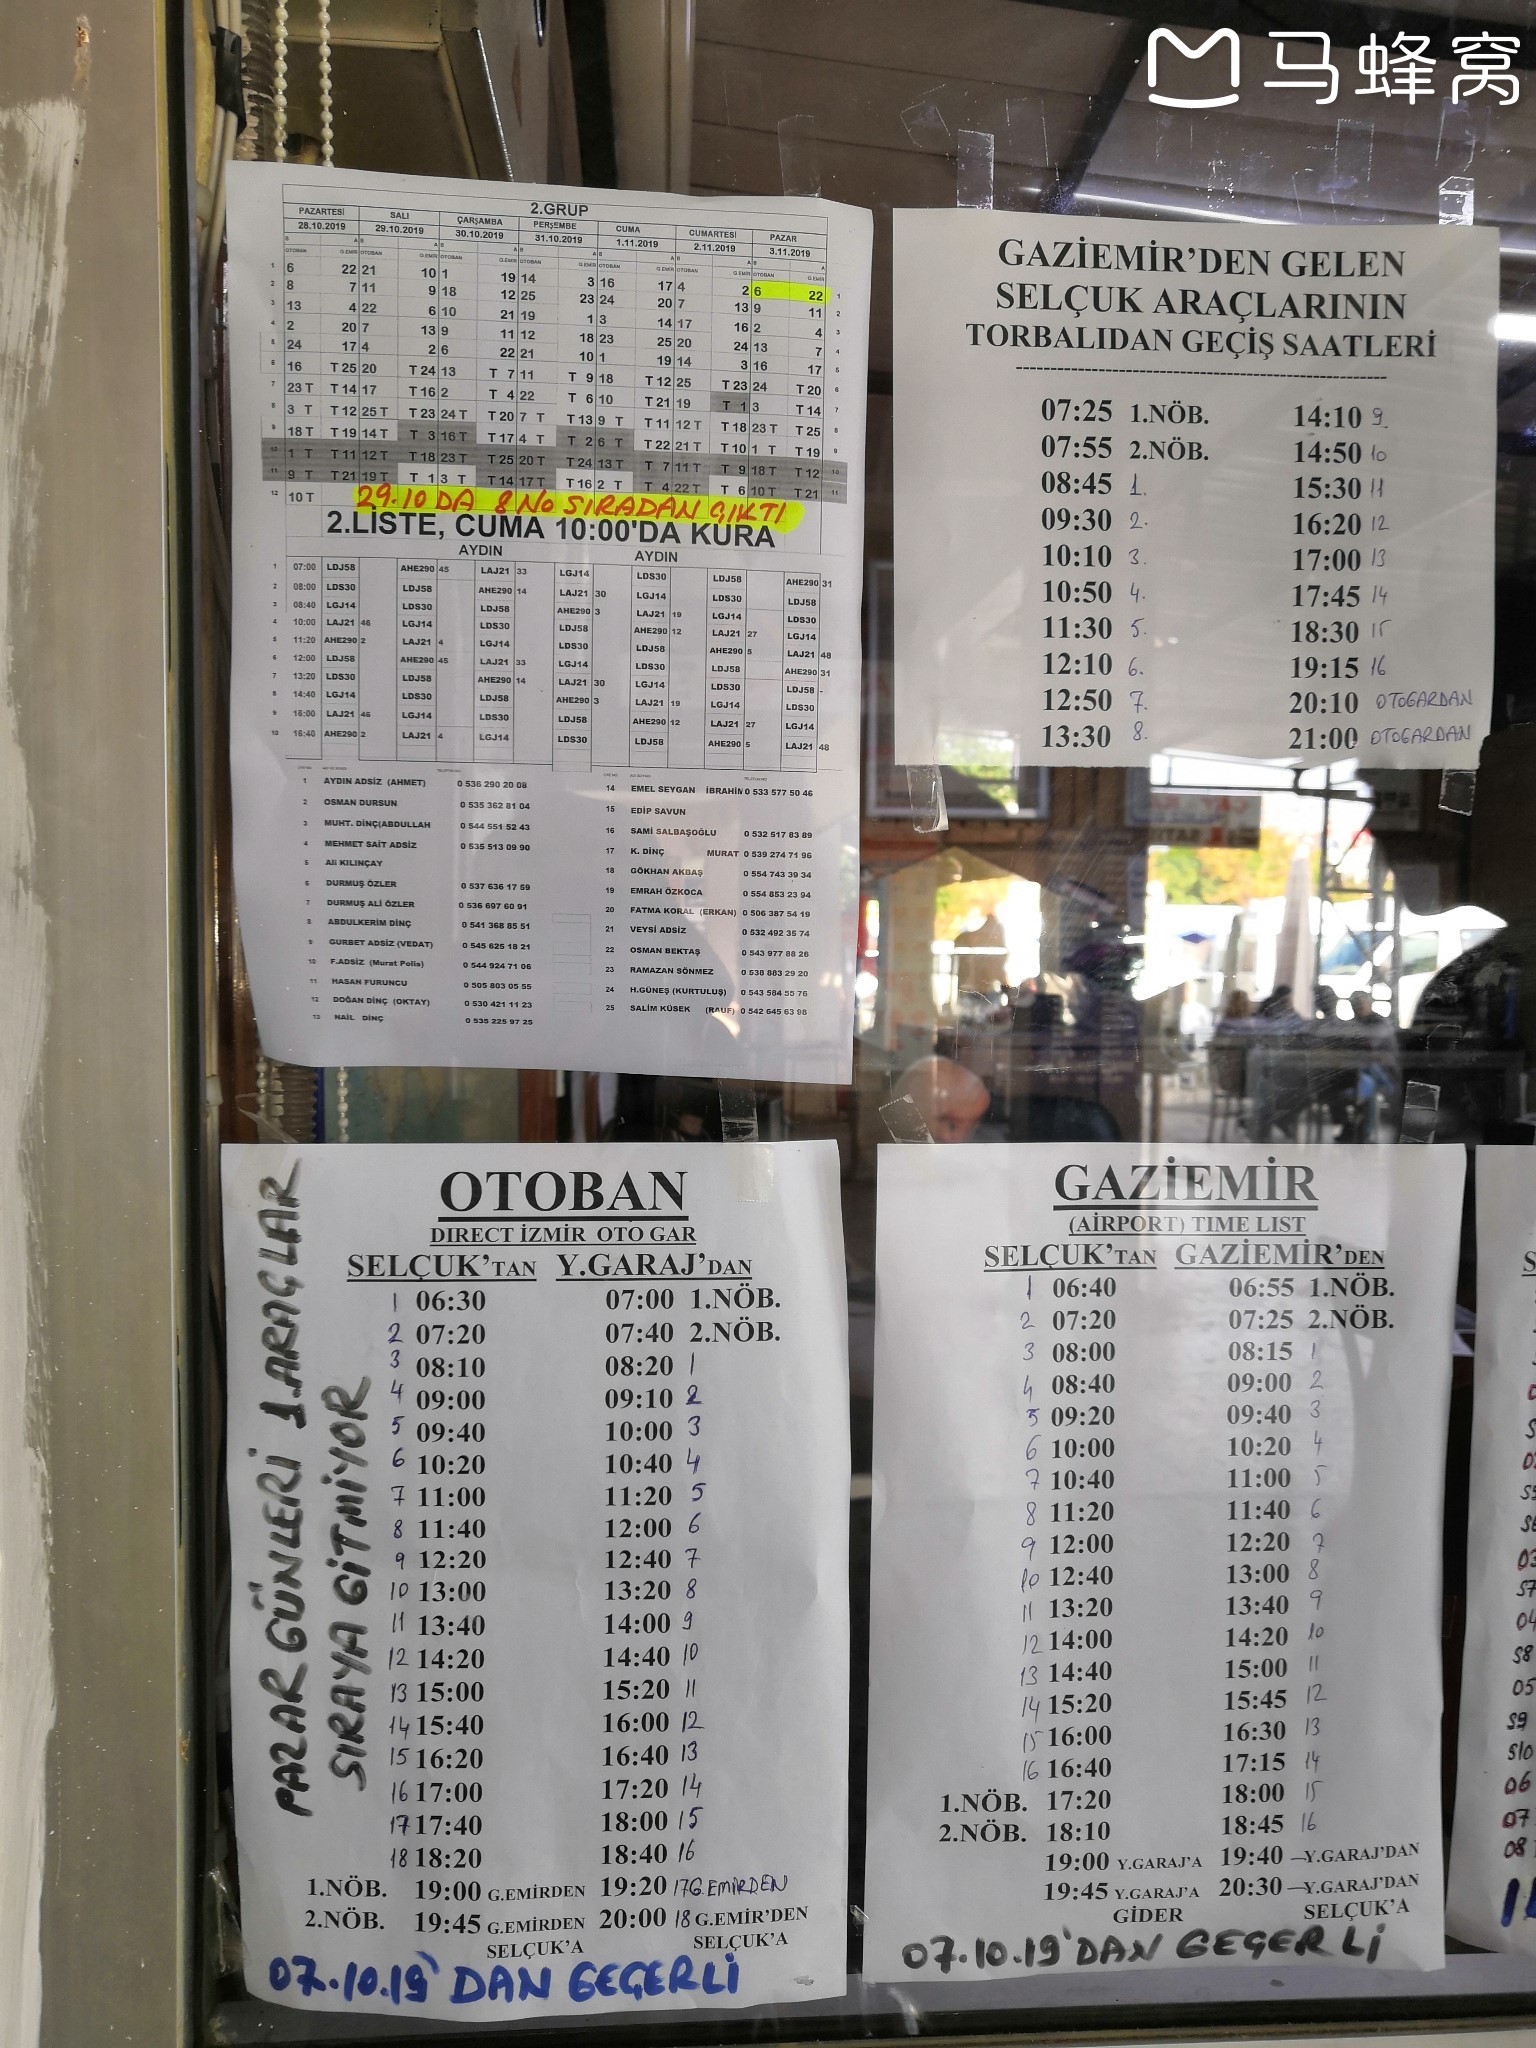 马蜂窝
2.GRUP
PAZARTESİ SALI ÇARŞAMBA PERŞEMBE CUMA CUMARTESİ PAZAR
28.10.2019 29.10.2019 30.10.2019 31.10.2019 1.11.2019 2.11.2019 3.11.2019
1 6 22 21 10 1 19 14 3 16 17 4 2 6 22 1
2 8 7 11 9 18 12 25 23 24 20 7 13 9 11 2
3 13 4 22 6 10 21 19 1 3 14 17 16 2 4 3
4 2 20 7 13 9 11 12 18 23 25 20 24 13 7 4
5 24 17 4 2 6 22 21 10 1 19 14 3 16 17 5
6 16 T 25 20 T 24 13 T 7 11 T 9 18 T 12 25 T 23 24 T 20 6
7 23 T T 14 17 T 16 2 T 4 22 T 6 10 T 21 19 T 1 3 T 14 7
8 3 T T 12 25 T T 23 24 T T 20 7 T T 13 9 T T 11 12 T T 18 23 T T 25 8
9 18 T T 19 14 T T 3 16 T T 17 4 T T 2 6 T T 22 21 T T 10 1 T T 19 9
10 1 T T 11 12 T T 18 23 T T 25 20 T T 24 13 T T 7 11 T T 9 18 T T 12 10
11 9 T T 21 19 T T 1 3 T T 14 17 T T 16 2 T T 4 22 T T 6 10 T T 21 11
12 10 T
29.10 DA 8 No SIRADAN ÇIKTI
2.LİSTE, CUMA 10:00'DA KURA
AYDIN AYDIN
1 07:00 LDJ58 AHE290 45 LAJ21 33 LGJ14 LDS30 LDJ58 AHE290 31
2 08:00 LDS30 LDJ58 AHE290 14 LAJ21 30 LGJ14 LDS30 LDJ58
3 08:40 LGJ14 LDS30 LDJ58 AHE290 3 LAJ21 19 LGJ14 LDS30
4 10:00 LAJ21 46 LGJ14 LDS30 LDJ58 AHE290 12 LAJ21 27 LGJ14
5 11:20 AHE290 2 LAJ21 4 LGJ14 LDS30 LDJ58 AHE290 5 LAJ21 48
6 12:00 LDJ58 AHE290 45 LAJ21 33 LGJ14 LDS30 LDJ58 AHE290 31
7 13:20 LDS30 LDJ58 AHE290 14 LAJ21 30 LGJ14 LDS30 LDJ58
8 14:40 LGJ14 LDS30 LDJ58 AHE290 3 LAJ21 19 LGJ14 LDS30
9 16:00 LAJ21 46 LGJ14 LDS30 LDJ58 AHE290 12 LAJ21 27 LGJ14
10 16:40 AHE290 2 LAJ21 4 LGJ14 LDS30 LDJ58 AHE290 5 LAJ21 48
1 AYDIN ADSİZ (AHMET) 0 536 290 20 08
2 OSMAN DURSUN 0 535 362 81 04
3 MUHT. DİNÇ(ABDULLAH 0 544 551 52 43
4 MEHMET SAİT ADSİZ 0 535 513 09 90
5 Ali KILINÇAY
6 DURMUŞ ÖZLER 0 537 636 17 59
7 DURMUŞ ALİ ÖZLER 0 536 697 60 91
8 ABDULKERİM DİNÇ 0 541 368 85 51
9 GURBET ADSİZ (VEDAT) 0 545 625 18 21
10 F.ADSİZ (Murat Polis) 0 544 924 71 06
11 HASAN FURUNCU 0 505 803 05 55
12 DOĞAN DİNÇ (OKTAY) 0 530 421 11 23
13 NAİL DİNÇ 0 535 225 97 25
14 EMEL SEYGAN İBRAHİM 0 533 577 50 46
15 EDİP SAVUN
16 SAMİ SALBAŞOĞLU 0 532 517 83 89
17 K. DİNÇ MURAT 0 539 274 71 96
18 GÖKHAN AKBAŞ 0 554 743 39 34
19 EMRAH ÖZKOCA 0 554 853 23 94
20 FATMA KORAL (ERKAN) 0 506 387 54 19
21 VEYSİ ADSİZ 0 532 492 35 74
22 OSMAN BEKTAŞ 0 543 977 88 26
23 RAMAZAN SÖNMEZ 0 538 883 29 20
24 H.GÜNEŞ (KURTULUŞ) 0 543 584 55 76
25 SALİM KÜSEK (RAUF) 0 542 645 63 98
GAZİEMİR'DEN GELEN
SELÇUK ARAÇLARININ
TORBALIDAN GEÇİŞ SAATLERİ
07:25 1.NÖB. 14:10 9.
07:55 2.NÖB. 14:50 10
08:45 1. 15:30 11
09:30 2. 16:20 12
10:10 3. 17:00 13
10:50 4. 17:45 14
11:30 5. 18:30 15
12:10 6. 19:15 16
12:50 7. 20:10 OTOGARDAN
13:30 8. 21:00 OTOGARDAN
PAZAR GÜNLERİ 1.ARAÇLAR
SIRAYA GİTMİYOR
OTOBAN
DIRECT İZMİR OTO GAR
SELÇUK'TAN Y.GARAJ'DAN
1 06:30 07:00 1.NÖB.
2 07:20 07:40 2.NÖB.
3 08:10 08:20 1
4 09:00 09:10 2
5 09:40 10:00 3
6 10:20 10:40 4
7 11:00 11:20 5
8 11:40 12:00 6
9 12:20 12:40 7
10 13:00 13:20 8
11 13:40 14:00 9
12 14:20 14:40 10
13 15:00 15:20 11
14 15:40 16:00 12
15 16:20 16:40 13
16 17:00 17:20 14
17 17:40 18:00 15
18 18:20 18:40 16
1.NÖB. 19:00 G.EMİRDEN 19:20 17 G.EMİRDEN
2.NÖB. 19:45 G.EMİRDEN 20:00 18 G.EMİR'DEN
SELÇUK'A SELÇUK'A
07.10.19'DAN GEÇERLİ
GAZİEMİR
(AİRPORT) TIME LIST
SELÇUK'TAN GAZİEMİR'DEN
1 06:40 06:55 1.NÖB.
2 07:20 07:25 2.NÖB.
3 08:00 08:15 1
4 08:40 09:00 2
5 09:20 09:40 3
6 10:00 10:20 4
7 10:40 11:00 5
8 11:20 11:40 6
9 12:00 12:20 7
10 12:40 13:00 8
11 13:20 13:40 9
12 14:00 14:20 10
13 14:40 15:00 11
14 15:20 15:45 12
15 16:00 16:30 13
16 16:40 17:15 14
1.NÖB. 17:20 18:00 15
2.NÖB. 18:10 18:45 16
19:00 Y.GARAJ'A 19:40 –Y.GARAJ'DAN
19:45 Y.GARAJ'A 20:30 –Y.GARAJ'DAN
GİDER SELÇUK'A
07.10.19'DAN GEÇERLİ